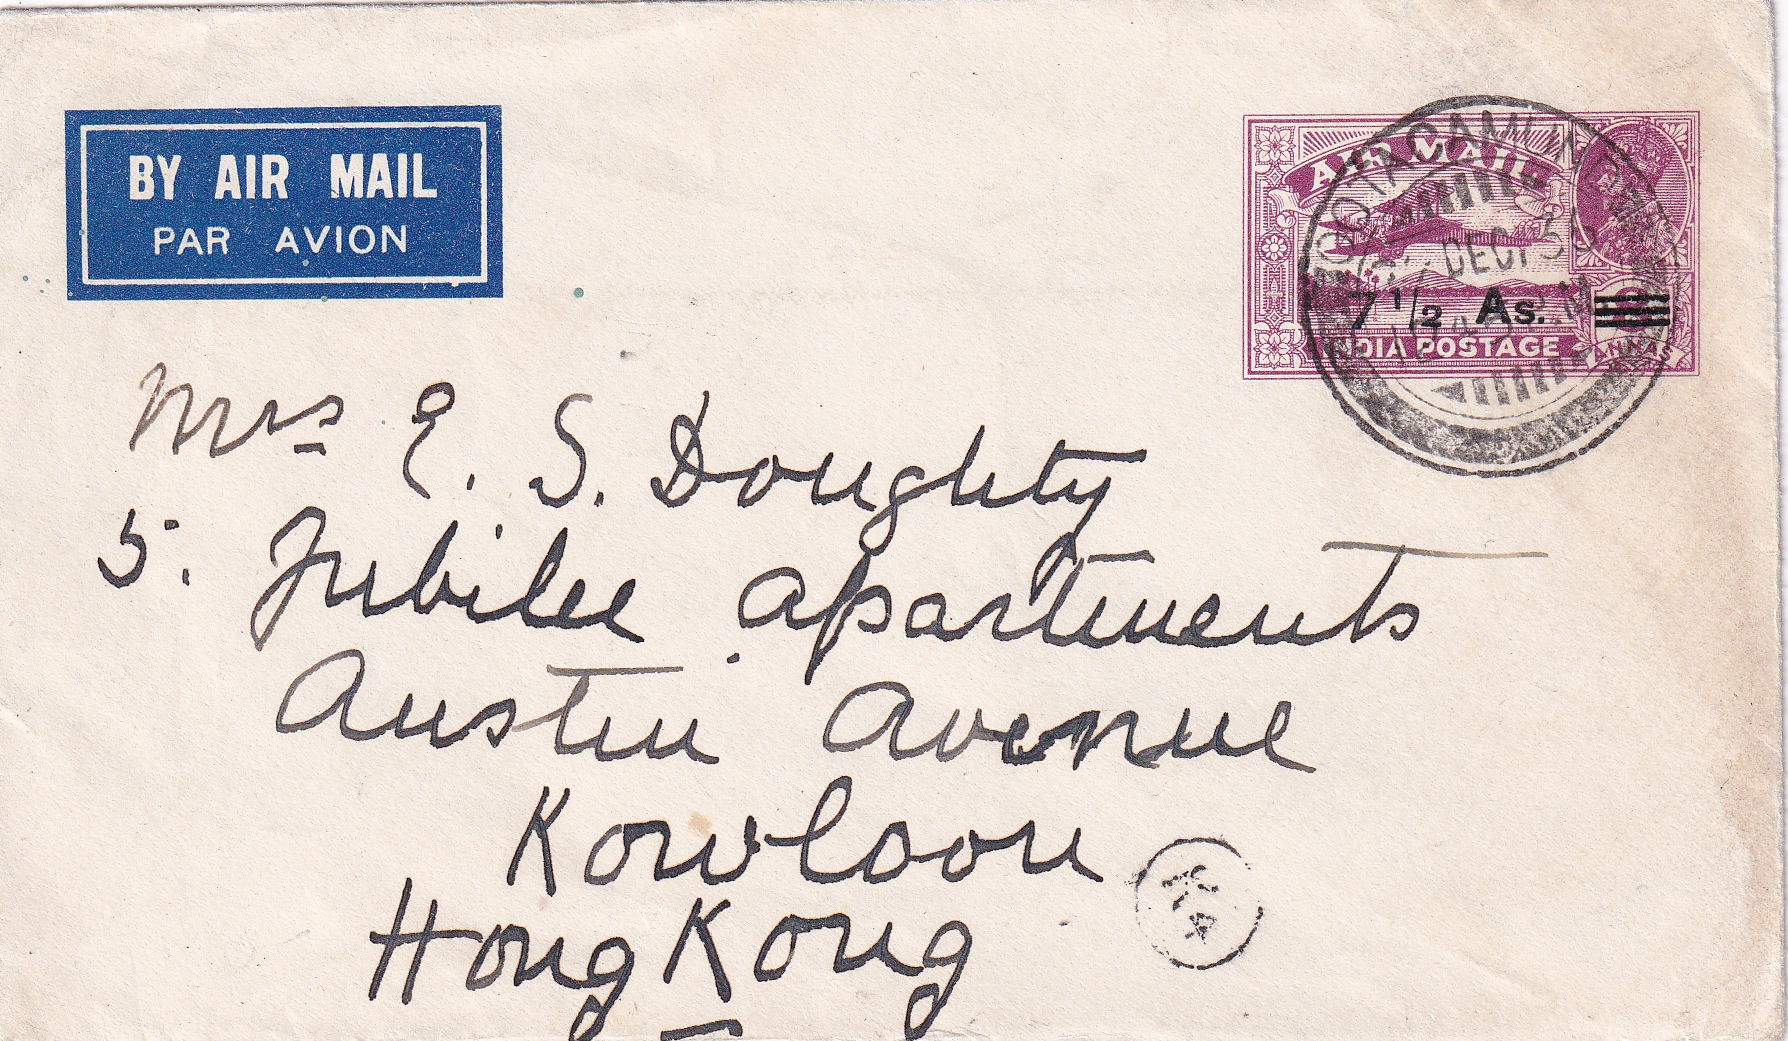 BY AIR MAIL
PAR AVION
AIR MAIL
DEC 3
7 1/2 As.
INDIA POSTAGE
ANNAS
Mrs E. S. Doughty
5. Jubilee apartments
Austin Avenue
Kowloon
Hong Kong